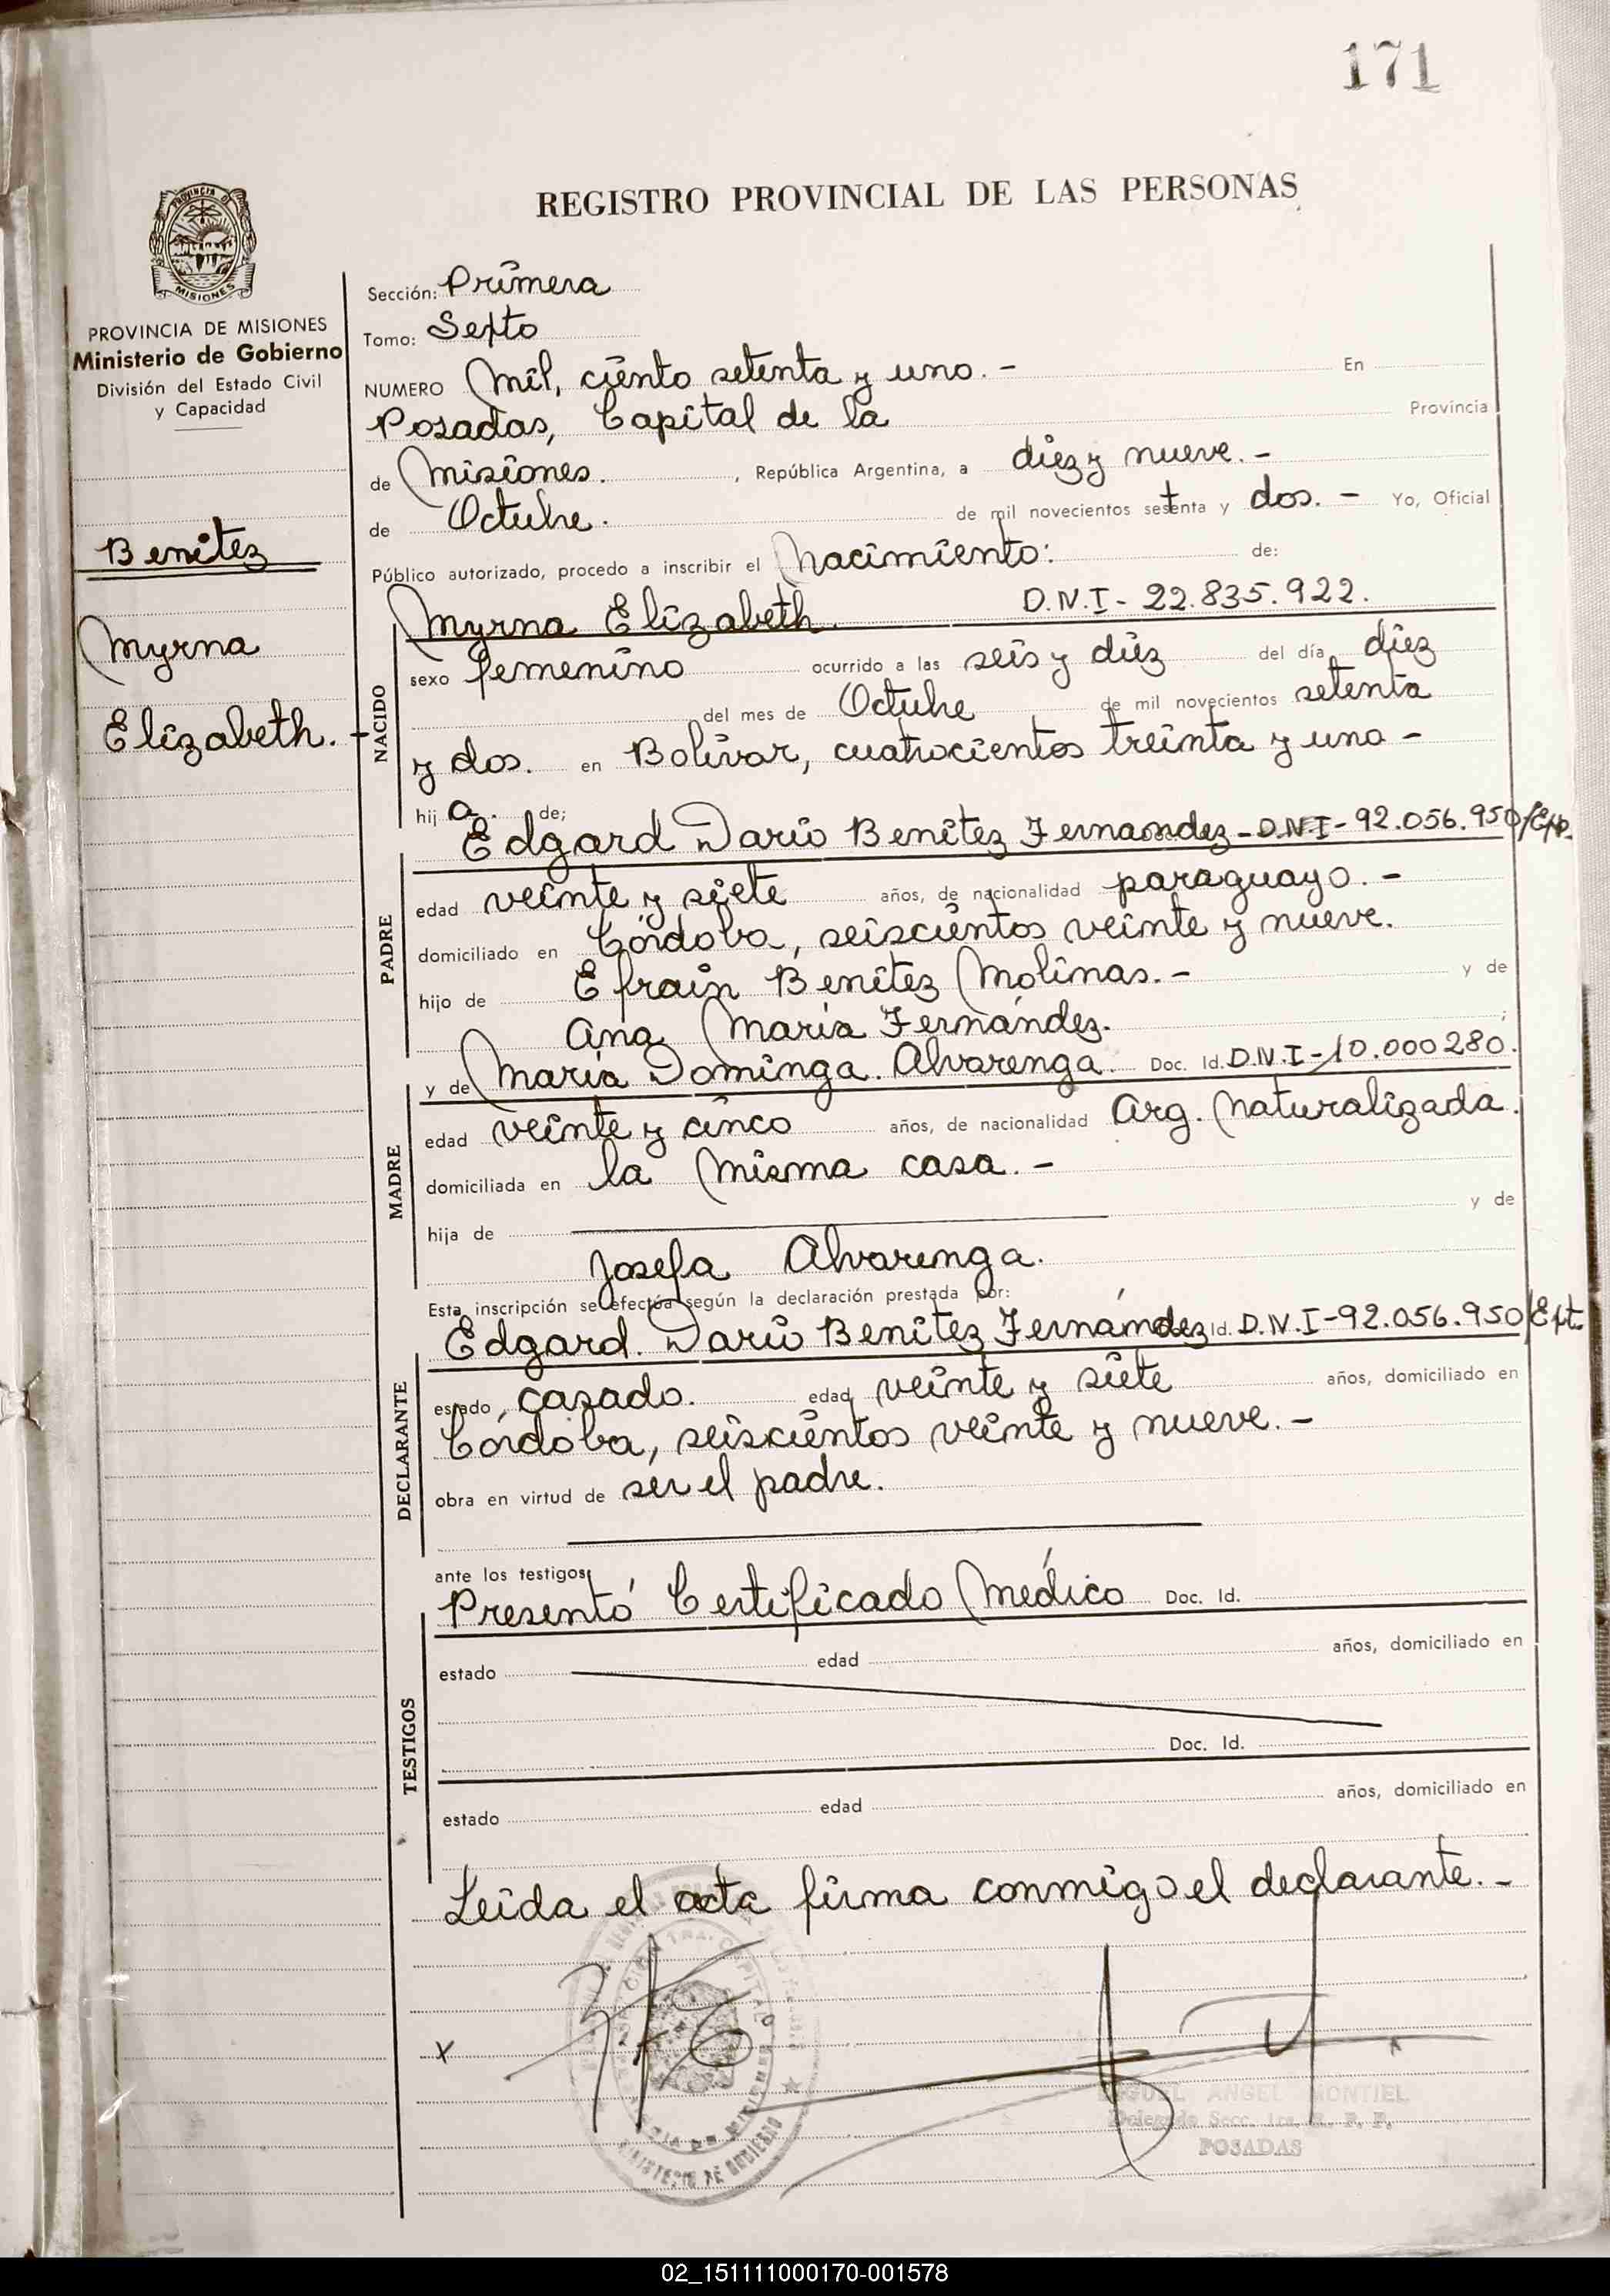 171
REGISTRO PROVINCIAL DE LAS PERSONAS
PROVINCIA
MISIONES
PROVINCIA DE MISIONES
Ministerio de Gobierno
División del Estado Civil
y Capacidad
Benitez
Myrna
Elizabeth. -
Sección: Primera
Tomo: Sexto
NUMERO Mil, ciento setenta y uno. - En
Posadas, Capital de la Provincia
de Misiones. , República Argentina, a diez y nueve. -
de Octubre. de mil novecientos setenta y dos. - Yo, Oficial
Público autorizado, procedo a inscribir el Nacimiento: de:
Myrna Elizabeth. D.N.I - 22.835.922.
NACIDO
sexo femenino ocurrido a las seis y diez del día diez
del mes de Octubre de mil novecientos setenta
y dos. en Bolívar, cuatrocientos treinta y uno -
hij a. de;
Edgard Darío Benítez Fernandez - D.N.I - 92.056.950/Ext.
PADRE
edad veinte y siete años, de nacionalidad paraguayo. -
domiciliado en Córdoba, seiscientos veinte y nueve.
hijo de Efraín Benítez Molinas. - y de
Ana María Fernández. ;
y de María Dominga Alvarenga. Doc. Id. D.N.I - 10.000280.
MADRE
edad veinte y cinco años, de nacionalidad Arg. Naturalizada.
domiciliada en la misma casa. -
hija de y de
Josefa Alvarenga.
Esta inscripción se efectúa según la declaración prestada por:
Edgard Darío Benítez Fernández Id. D.N.I - 92.056.950/Ext.
DECLARANTE
estado casado. edad veinte y siete años, domiciliado en
Córdoba, seiscientos veinte y nueve. -
obra en virtud de ser el padre.
ante los testigos
Presentó Certificado Médico Doc. Id.
TESTIGOS
estado edad años, domiciliado en
Doc. Id.
estado edad años, domiciliado en
Leida el acta firma conmigo el declarante. -
x
MINISTERIO DE GOBIERNO
MIGUEL ANGEL MONTIEL
Delegado Secc. 1ra. R. P. P.
POSADAS
02_151111000170-001578